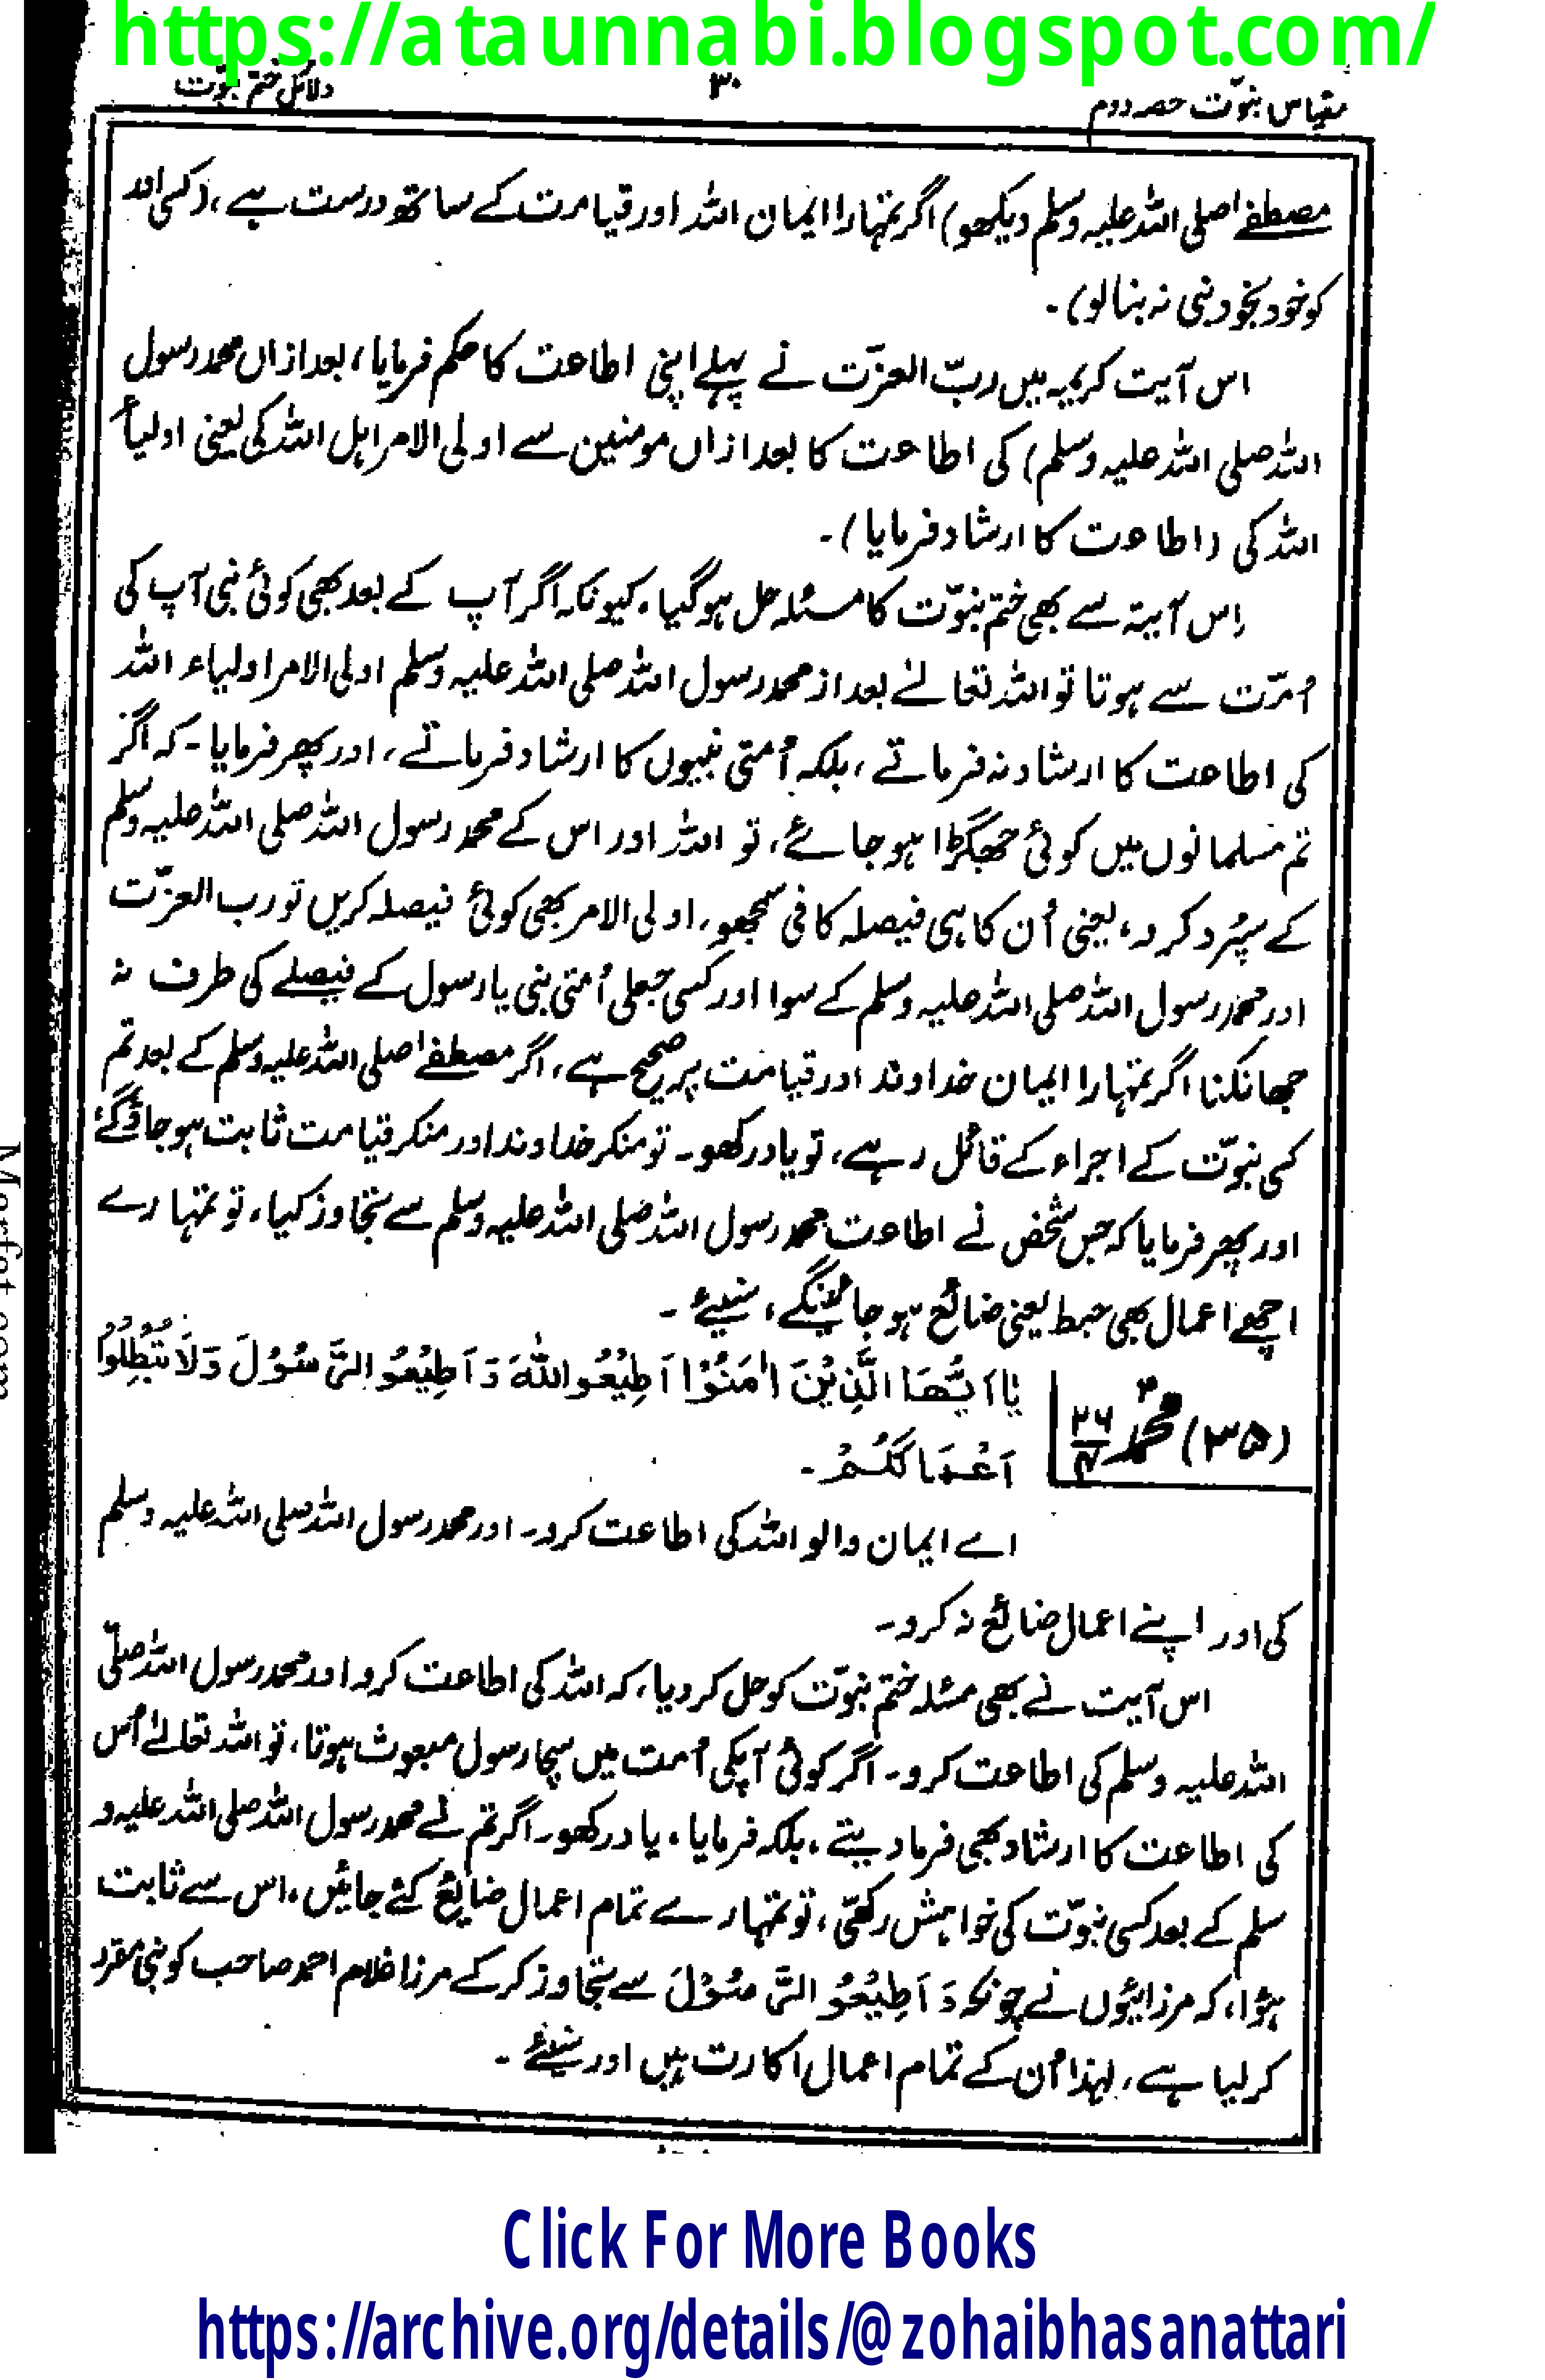 https://ataunnabi.blogspot.com/
مقیاس نبوّت حصہ دوم
۳۰
دلائل ختم نبوّت
مصطفےٰ صلی اللہ علیہ وسلم دیکھو) اگر تمہارا ایمان اللہ اور قیامت کے ساتھ درست ہے، (کسی اور
کو خود بخود نبی نہ بنا لو)۔
اس آیت کریمہ میں ربّ العزّت نے پہلے اپنی اطاعت کا حکم فرمایا، بعد ازاں محمد رسول
اللہ صلی اللہ علیہ وسلم) کی اطاعت کا بعد ازاں مومنین سے اولی الامر اہل اللہ کی یعنی اولیأ
اللہ کی (اطاعت کا ارشاد فرمایا)۔
اِس آیۃ سے بھی ختم نبوّت کا مسئلہ حل ہو گیا، کیونکہ اگر آپ کے بعد بھی کوئی نبی آپ کی
اُمّت سے ہوتا تو اللہ تعالےٰ بعد از محمد رسول اللہ صلی اللہ علیہ وسلم اولی الامر اولیاء اللہ
کی اطاعت کا ارشاد نہ فرماتے، بلکہ اُمتی نبیوں کا ارشاد فرماتے، اور پھر فرمایا۔ کہ اگر
تم مسلمانوں میں کوئی جھگڑا ہو جائے، تو اللہ اور اس کے محمد رسول اللہ صلی اللہ علیہ وسلم
کے سپُرد کر دو، یعنی اُن کا ہی فیصلہ کافی سمجھو، اولی الامر بھی کوئی فیصلہ کریں تو رب العزّت
اور محمد رسول اللہ صلی اللہ علیہ وسلم کے سوا اور کسی جعلی اُمتی نبی یا رسول کے فیصلے کی طرف نہ
جھانکنا اگر تمہارا ایمان خداوند اور قیامت پر صحیح ہے، اگر مصطفےٰ صلی اللہ علیہ وسلم کے بعد تم
کسی نبوّت کے اجراء کے قائل رہے، تو یاد رکھو۔ تو منکر خداوند اور منکر قیامت ثابت ہو جاؤ گے
اور پھر فرمایا کہ جس شخص نے اطاعت محمد رسول اللہ صلی اللہ علیہ وسلم سے تجاوز کیا، تو تمہارے
اچھے اعمال بھی حبط یعنی ضائع ہو جائینگے، سنیئے۔
(۳۵) محمّد ۲۶/۴ یٰاَیُّھَا الَّذِیْنَ اٰمَنُوْا اَطِیْعُو اللّٰہَ وَ اَطِیْعُو الرَّسُوْلَ وَلَا تُبْطِلُوْا
اَعْمَالَکُمْ۔
اے ایمان والو اللہ کی اطاعت کرو۔ اور محمد رسول اللہ صلی اللہ علیہ وسلم
کی اور اپنے اعمال ضائع نہ کرو۔
اس آیت نے بھی مسئلہ ختم نبوّت کو حل کر دیا، کہ اللہ کی اطاعت کرو اور محمد رسول اللہ صلّی
اللہ علیہ وسلم کی اطاعت کرو۔ اگر کوئی آپکی اُمت میں سچا رسول مبعوث ہوتا، تو اللہ تعالےٰ اُس
کی اطاعت کا ارشاد بھی فرما دیتے، بلکہ فرمایا، یاد رکھو۔ اگر تم نے محمد رسول اللہ صلی اللہ علیہ و
سلم کے بعد کسی نبوّت کی خواہش رکھی، تو تمہارے تمام اعمال ضایع کئے جائیں، اس سے ثابت
ہؤا، کہ مرزائیوں نے چونکہ وَ اَطِیْعُو الرَّسُوْلَ سے تجاوز کر کے مرزا غلام احمد صاحب کو نبی مقرر
کر لیا ہے، لہٰذا اُن کے تمام اعمال اکارت ہیں اور سنیئے۔
Marfat.com
Click For More Books
https://archive.org/details/@zohaibhasanattari